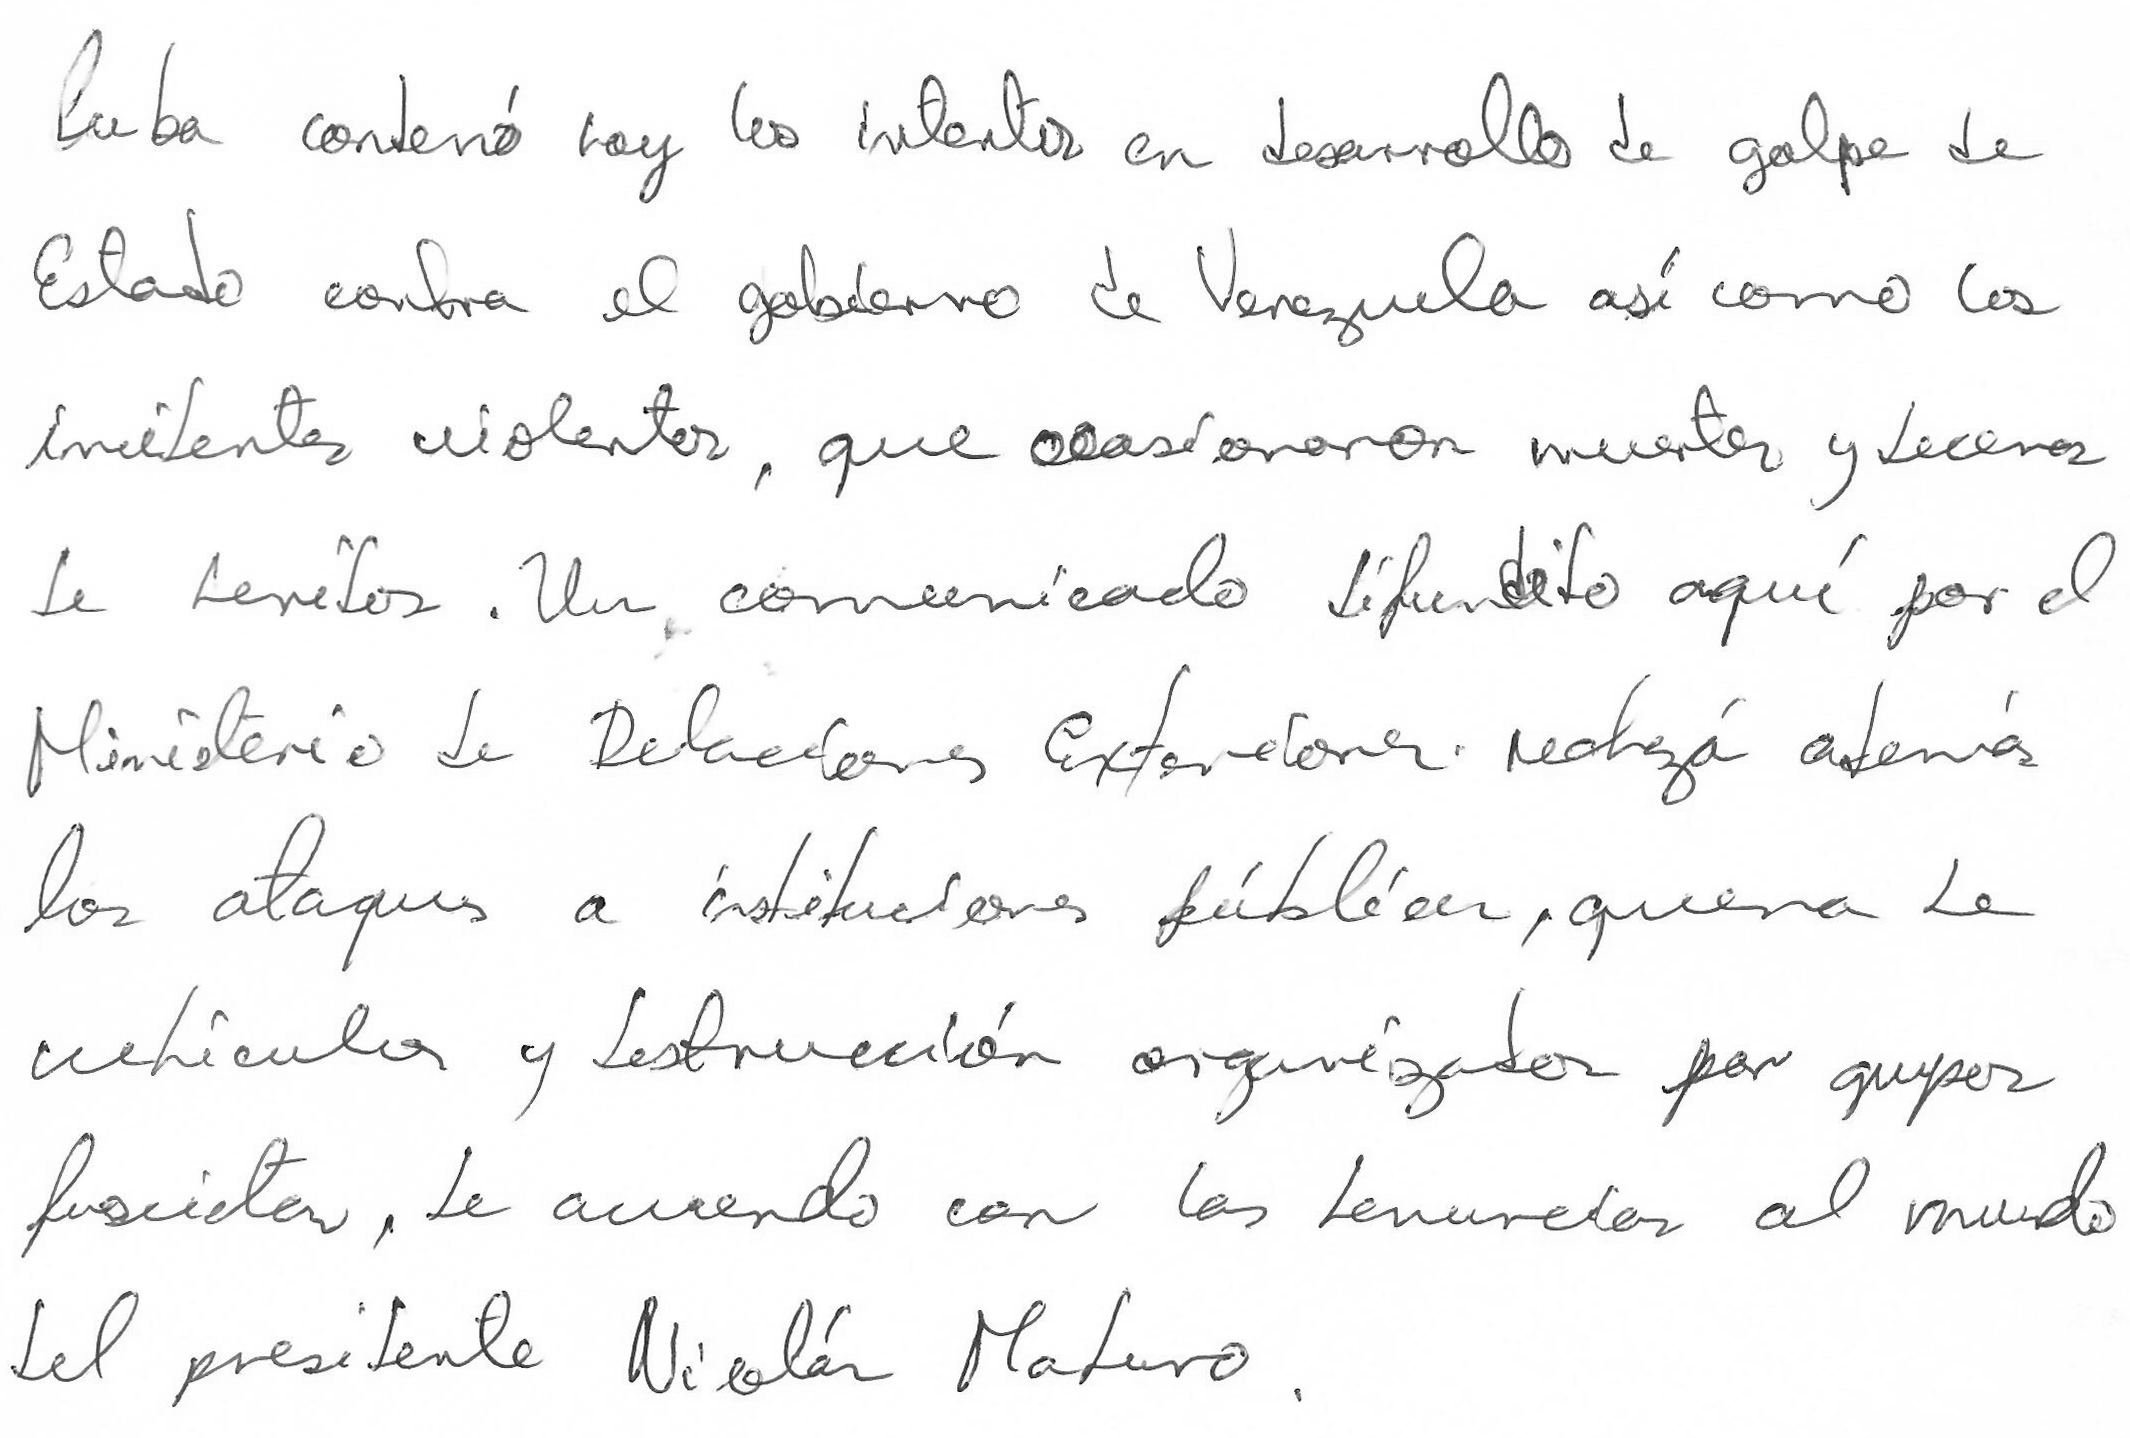 Cuba condenó hoy los intentos en desarrollo de golpe de
Estado contra el gobierno de Venezuela así como los
incidentes violentos, que ocasionaron muertes y decenas
de heridos. Un comunicado difundido aquí por el
Ministerio de Relaciones Exteriores rechazá además
los ataques a instituciones públicas, quema de
vehículos y destrucción organizados por grupos
fascistas, de acuerdo con las denuncias al mundo
del presidente Nicolás Maduro.